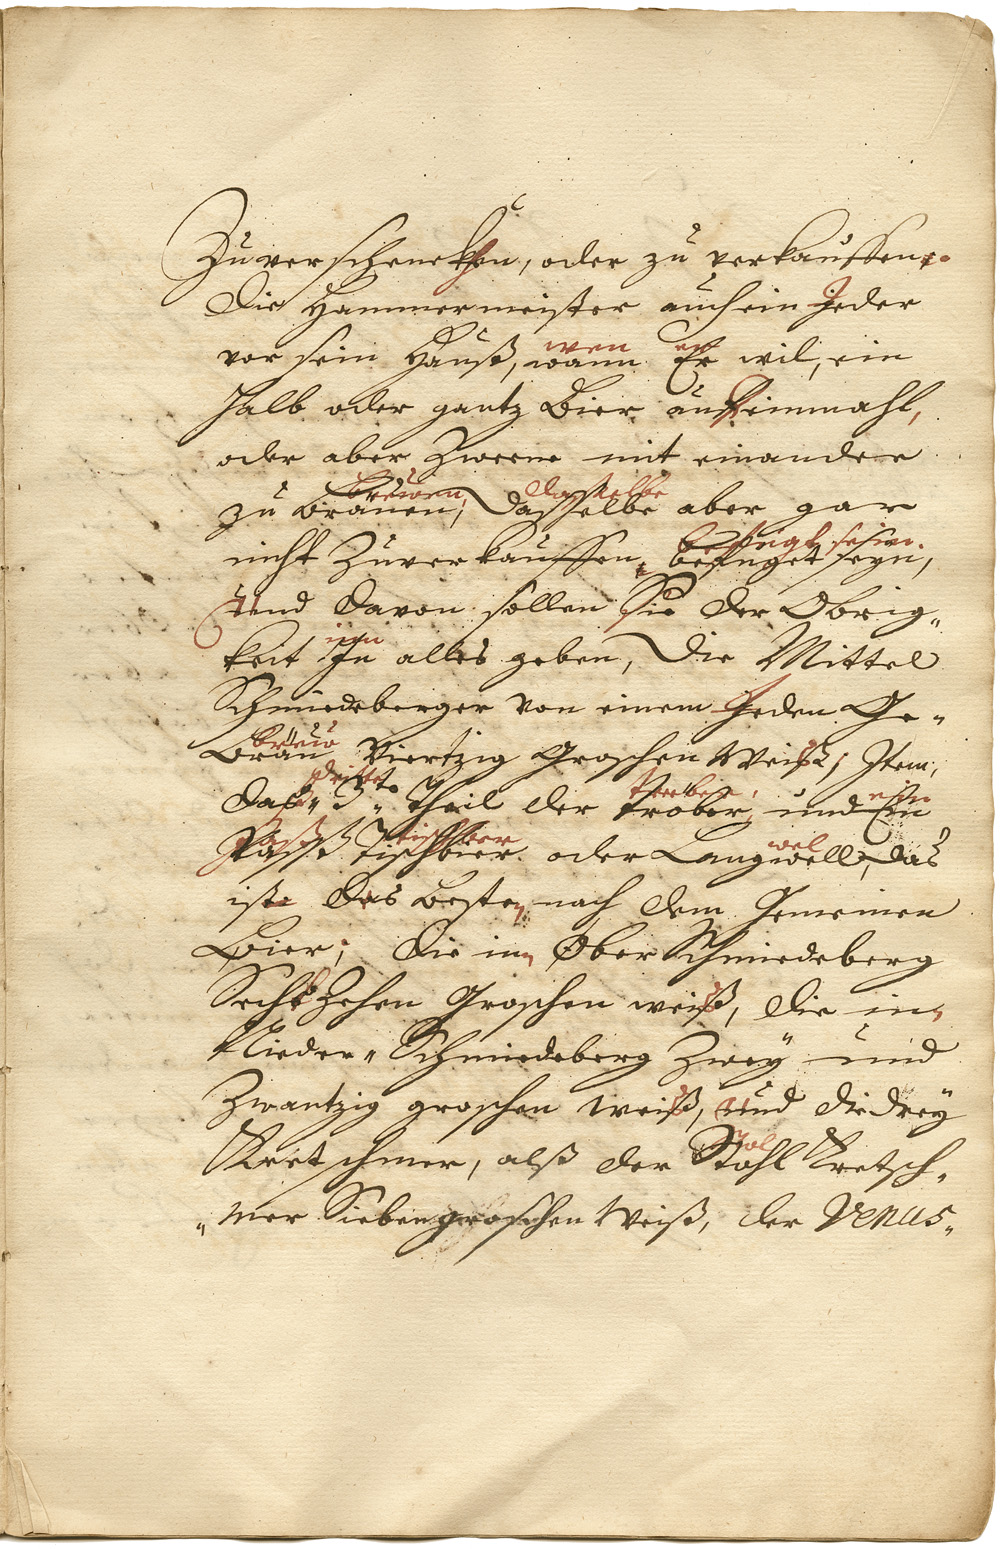 Zuverschencken, oder zu verkauffen.
Die Hammermeister auch ein Jeder
wen er
vor sein Hauß, wann Er wil, ein
halb oder gantz Bier auf einmahl,
oder aber Zweene mit einander
brewen, dasselbe
zu Brauen, Dasselbe aber gar
befugt sein.
nicht Zuverkauffen, befuget seyn,
Und davon sollen Sie der Obrig„
inn
keit In alles geben, Die Mittel
Schmiedeberger von einem Jeden Ge„
brew
Bräu Viertzig Groschen Weiß; Item,
dritte treber, ein
Daß „3„te Theil der tröber, und Ein
tischbier wel
Vaß Tischbier oder Langwell, das
ist das Beste, nach dem Gemeinen
Bier; Die in Ober Schmiedeberg
Sechßzehen Groschen weiß, die in
Nieder„Schmiedeberg Zwey und
Zwantzig groschen weiß, Und die drey
Kretschmer, alß der Stohl Kretsch„
„mer Sieben groschen Weiß, der Venus„